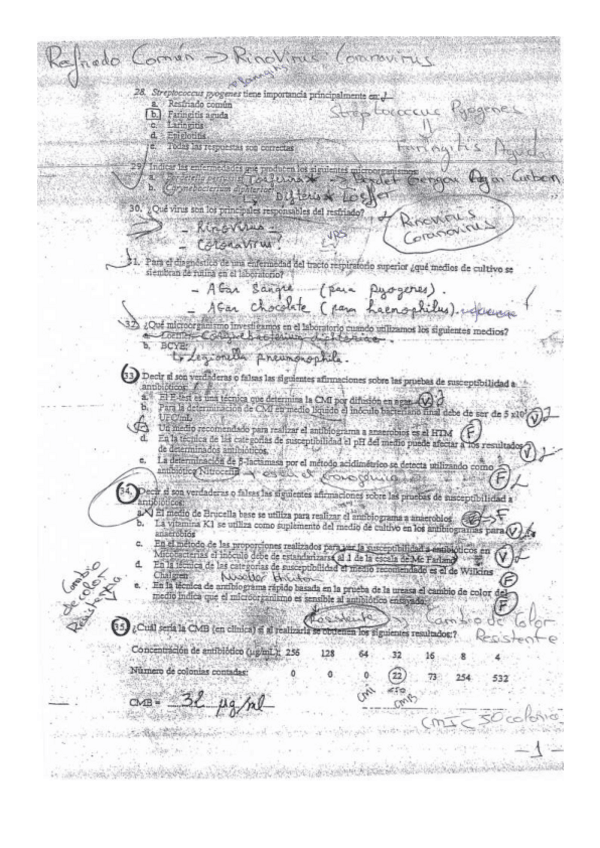 Resfriado Común → Rinovirus Coronavirus
28. Streptococcus pyogenes tiene importancia principalmente en:
a. Resfriado común
b. Faringitis aguda
c. Laringitis
d. Epiglotitis
e. Todas las respuestas son correctas
Streptococcus Pyogenes
Faringitis Aguda
29. Indicar las enfermedades que producen los siguientes microorganismos
a.
b. Corynebacterium diphteriae
→ Difteria Loeffler
30. ¿Qué virus son los principales responsables del resfriado?
- Rinovirus
- Coronavirus
Rinovirus
Coronavirus
31. Para el diagnóstico de una enfermedad del tracto respiratorio superior ¿qué medios de cultivo se
siembran de rutina en el laboratorio?
- Agar Sangre (para pyogenes).
- Agar Chocolate (para haemophilus).
32. ¿Qué microorganismo investigamos en el laboratorio cuando utilizamos los siguientes medios?
b. BCYE:
↳ Legionella pneumophila.
33. Decir si son verdaderas o falsas las siguientes afirmaciones sobre las pruebas de susceptibilidad a
antibióticos:
a. El E-test es una técnica que determina la CMI por difusión en agar V
b. Para la determinación de CMI en medio líquido el inóculo bacteriano final debe de ser de 5 x10⁵ V
UFC/mL
c. Un medio recomendado para realizar el antibiograma a anaerobios es el HTM F
d. En la técnica de las categorías de susceptibilidad el pH del medio puede afectar a los resultados V
de determinados antibióticos.
e. La determinación de β-lactamasa por el método acidimétrico se detecta utilizando como
antibiótico Nitrocefin F
34. Decir si son verdaderas o falsas las siguientes afirmaciones sobre las pruebas de susceptibilidad a
antibióticos:
a. El medio de Brucella base se utiliza para realizar el antibiograma a anaerobios → F
b. La vitamina K1 se utiliza como suplemento del medio de cultivo en los antibiogramas para V
anaerobios
c. En el método de las proporciones realizados para ver la susceptibilidad a antibióticos en
Micobacterias el inóculo debe de estandarizarse al 1 de la escala de Mc Farland V
d. En la técnica de las categorías de susceptibilidad el medio recomendado es el de Wilkins
Chalgren Mueller Hinton F
e. En la técnica de antibiograma rápido basada en la prueba de la ureasa el cambio de color del
medio indica que el microorganismo es sensible al antibiótico ensayado F
Cambio
de color
Resistente
Resistente → Cambio de Color
Resistente
35. ¿Cuál sería la CMB (en clínica) si al realizarla se obtienen los siguientes resultados:?
Concentración de antibiótico (µg/mL): 256 128 64 32 16 8 4
Número de colonias contadas: 0 0 0 22 73 254 532
CMI CMB
CMB = 32 µg/ml
- 1 -